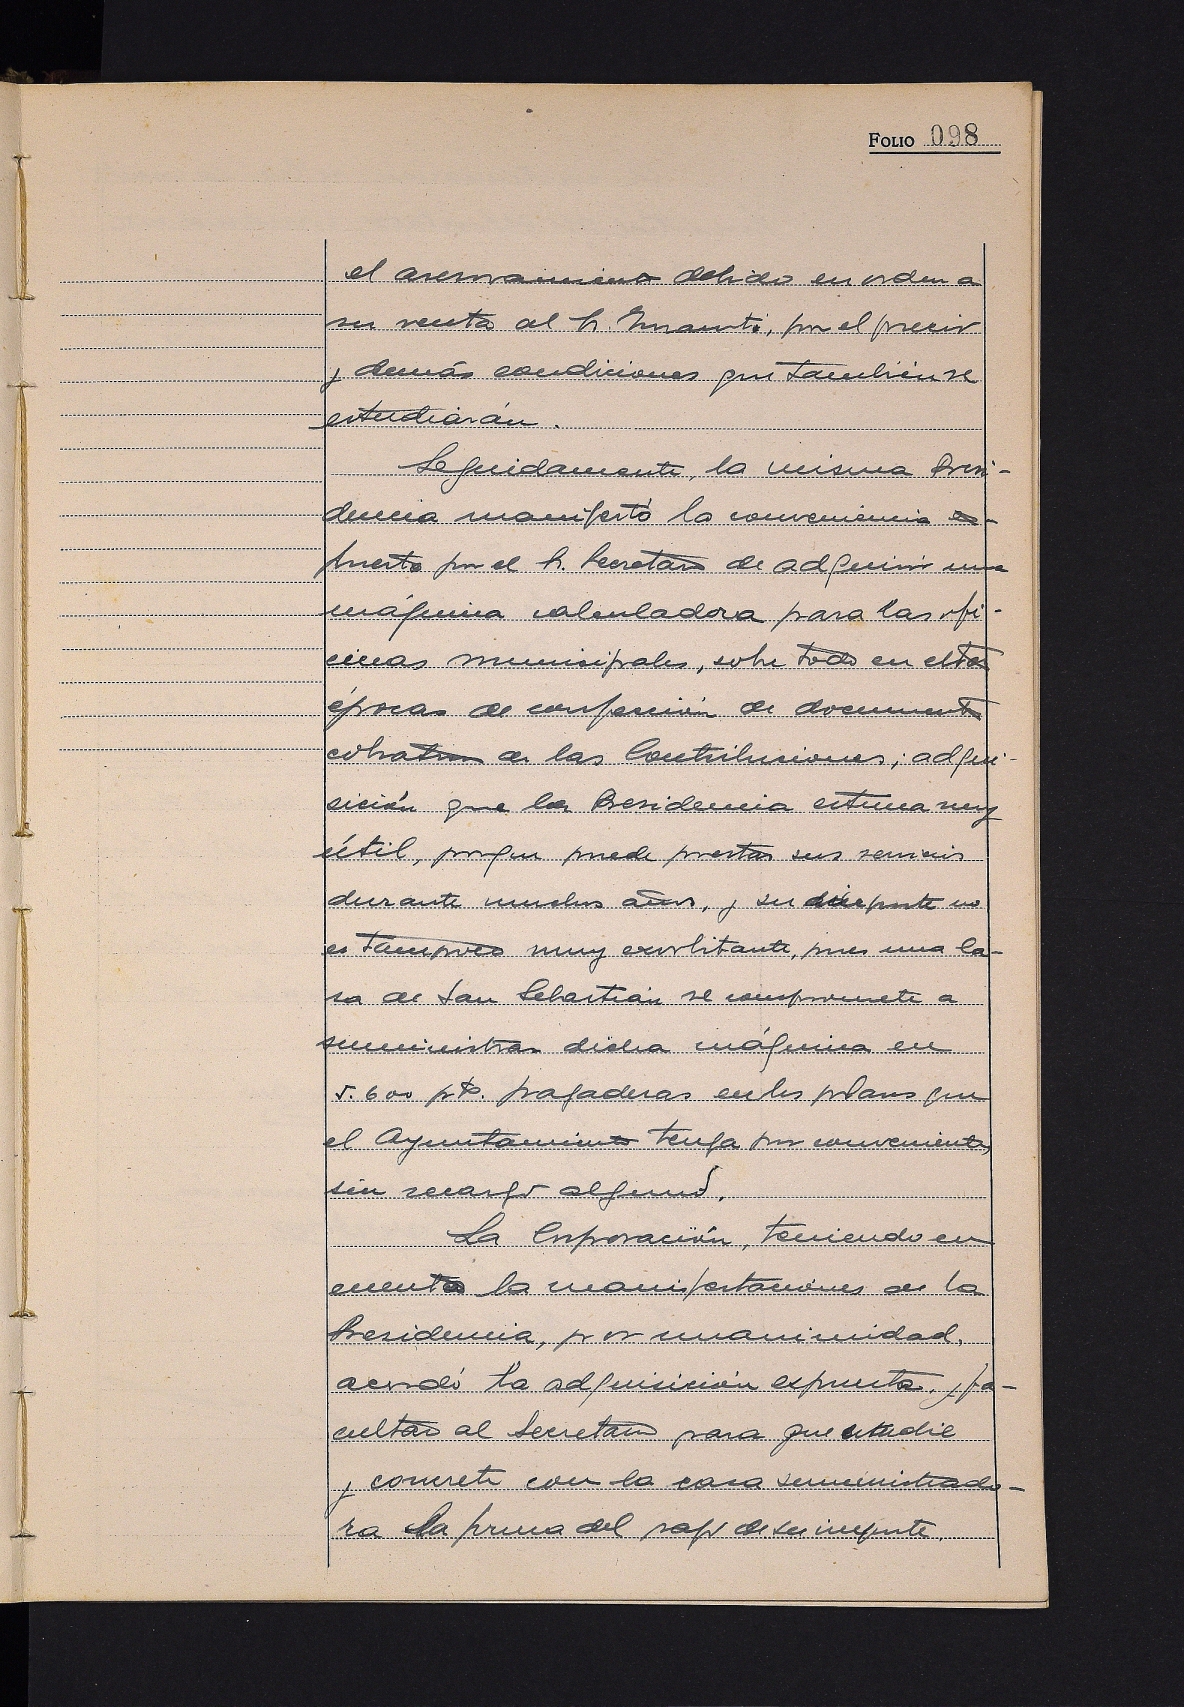 FOLIO 098
el asesoramiento debido en orden a
su venta al Sr. , por el precio
y demás condiciones que también se
estudiarán.
Seguidamente, la misma Presi-
dencia manifestó la conveniencia ex-
puesta por el Sr. Secretario de adquirir una
máquina calculadora para las ofi-
cinas municipales, sobre todo en estas
épocas de confección de documentos
cobratorios de las Contribuciones; adqui-
sición que la Presidencia estima muy
útil, porque puede prestar sus servicios
durante muchos años, y su importe no
es tampoco muy exorbitante, pues una ca-
sa de San Sebastián se compromete a
suministrar dicha máquina en
5.600 pts. pagaderas en los plazos que
el Ayuntamiento tenga por conveniente,
sin recargo alguno.
La Corporación, teniendo en
cuenta la manifestaciones de la
Presidencia, por unanimidad,
acordó la adquisición expuesta, y fa-
cultar al Secretario para que estudie
y concrete con la casa suministrado-
ra la forma del pago de su importe.